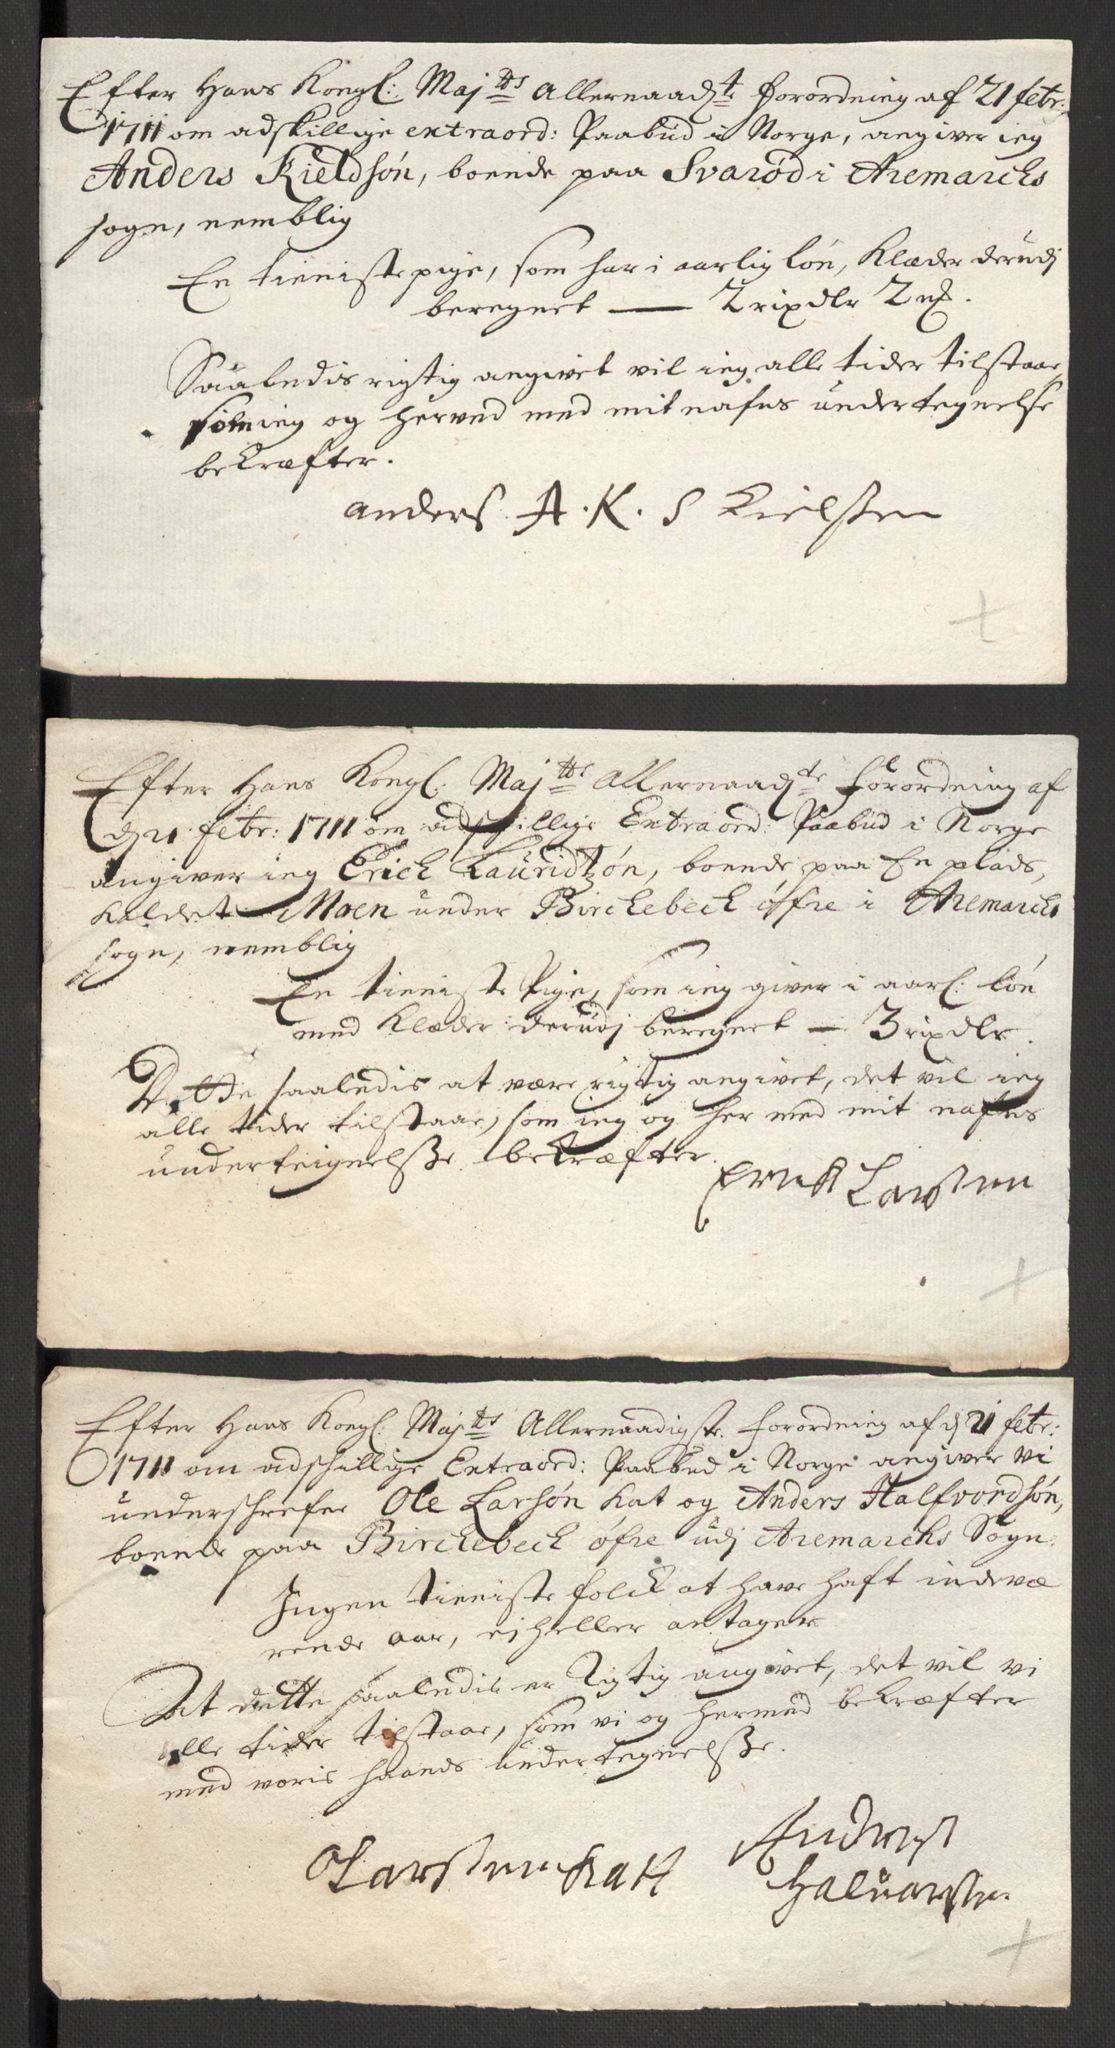 Efter Hans Kongl: Maj:tts Allernaad:te Forordning af 21 febr:
1711 om adskillige extraord: Paabud i Norge, angiver ieg
Anders Kieldsøn, boende paa Svarød i Aremarchs
sogn, nemblig
En tieniste pige, som har i aarlig løn, Klæder derudj
beregnet — 2 rixdlr 2 mk.
Saaledis rigtig angivet vil ieg alle tider tilstaae,
som ieg og herved med mit nafns undertegnelse
bekræfter.
anders A. K. S Kielsen
Efter Hans Kongl: Maj:tts Allernaad:te Forordning af
d 21 febr: 1711 om adskillige Extraord: Paabud i Norge
angiver ieg Erich Lauridtzøn, boende paa En plads,
kaldet Moen under Birchebech øfre i Aremarchs
sogn, nemblig
En tieniste Pige, som ieg giver i aarl: løn
med Klæder derudj beregnet — 3 rixdlr.
Dette saaledis at være rigtig angivet, det vil ieg
alle tider tilstaae, som ieg og her med mit nafns
underteignelsse bekræfter.
Erick Larsen
Efter Hans Kongl: Maj:tts Allernaadigste Forordning af d 21 febr:
1711 om adschillige Extraord: Paabud i Norge angiver vi
underschrefne Ole Larsøn Kat og Anders Halfvordsøn,
boende paa Birchebech øfre udj Aremarchs Sogn.
Ingen tieniste folck at have haft indevæ
rende aar, ej heller antager
At dette saaledis er Rigtig angivet, det vil vi
alle tider tilstaae, som vi og hermed bekræfter
med voris haands undertegnelsse.
O Larsen Katt
Anders
Haluorsen